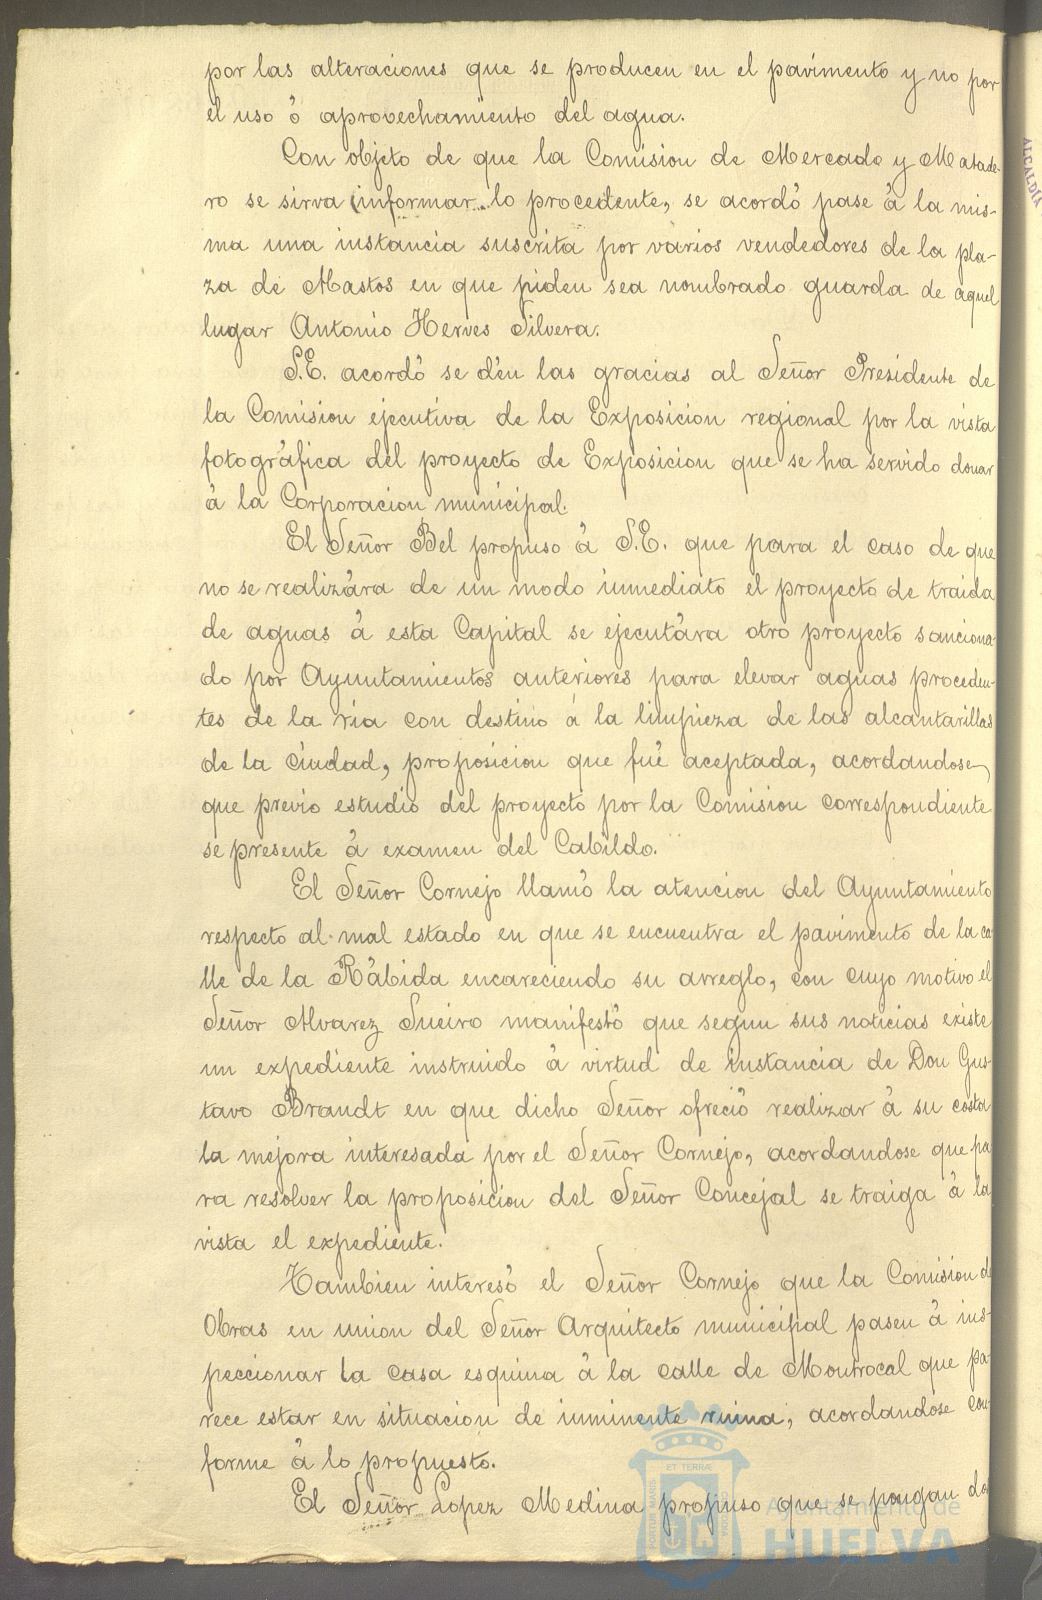 por las alteraciones que se producen en el pavimento y no por
el uso ó aprovechamiento del agua.
Con objeto de que la Comision de Mercado y Matade-
ro se sirva informar lo procedente, se acordó pase á la mis-
ma una instancia suscrita por varios vendedores de la pla-
za de Mastos en que piden sea nombrado guarda de aquel
lugar Antonio Herves Silvera.
S.E. acordó se dén las gracias al Señor Presidente de
la Comision ejecutiva de la Exposicion regional por la vista
fotográfica del proyecto de Exposicion que se ha servido donar
á la Corporacion municipal.
El Señor Bel propuso á S.E. que para el caso de que
no se realizára de un modo inmediato el proyecto de traida
de aguas á esta Capital se ejecutára otro proyecto sanciona-
do por Ayuntamientos anteriores para elevar aguas proceden-
tes de la ria con destino á la limpieza de las alcantarillas
de la ciudad, proposicion que fué aceptada, acordandose
que previo estudio del proyecto por la Comision correspondiente
se presente á examen del Cabildo.
El Señor Cornejo llamó la atencion del Ayuntamiento
respecto al mal estado en que se encuentra el pavimento de la ca-
lle de la Rábida encareciendo su arreglo, con cuyo motivo el
Señor Alvarez Sueiro manifestó que segun sus noticias existe
un expediente instruido á virtud de instancia de Don Gus-
tavo Brandt en que dicho Señor ofreció realizar á su costa
la mejora interesada por el Señor Cornejo, acordandose que pa
ra resolver la proposicion del Señor Concejal se traiga á la
vista el expediente.
Tambien interesó el Señor Cornejo que la Comision de
Obras en union del Señor Arquitecto municipal pasen á ins-
peccionar la casa esquina á la calle de Montrocal que pa-
rece estar en situacion de inminente ruina, acordandose con-
forme á lo propuesto.
El Señor Lopez Medina propuso que se pongan dos
ALCALDÍA
ET TERRÆ
PORTUM MARIS
CUSTODIA
Ayuntamiento de
HUELVA